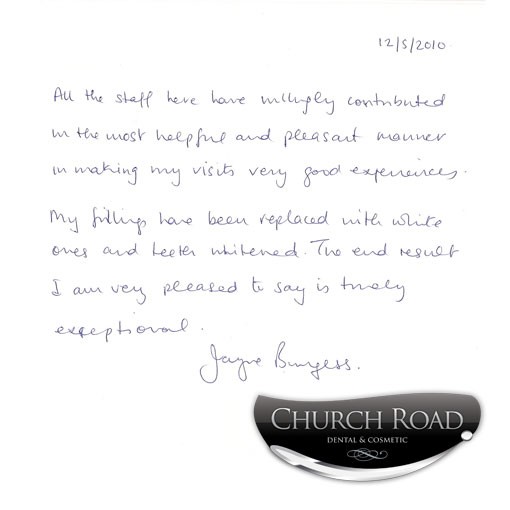 12/5/2010.
All the staff here have willingly contributed
in the most helpful and pleasant manner
in making my visits very good experiences.
My fillings have been replaced with white
ones and teeth whitened. The end result
I am very pleased to say is truely
exceptional.
Jayne Burgess.
CHURCH ROAD
DENTAL & COSMETIC